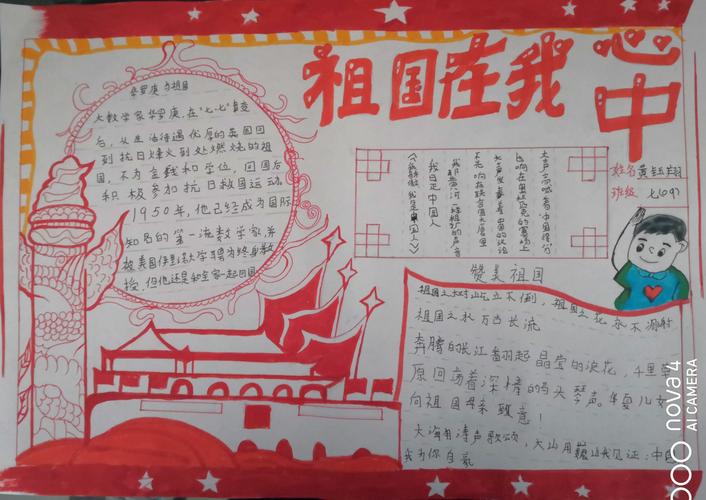 祖国在我心中
华罗庚与祖国
大数学家华罗庚,在"七·七"事变
后,从生活待遇优厚的英国回
到抗日烽火到处燃烧的祖
国,不为金钱和学位,回国后
积极参加抗日救国运动
1950年,他已经成为国际
知名的第一流数学家,并
被美国伊里诺大学聘为终身教
授,但他还是和全家一起回国
大声高喊着:中国得分
响在奥林匹克的赛场上
大声发表着中国的议论
响在联合国大厦里
我那黄河一样粗犷的声音
我是中国人
《我骄傲,我是中国人》
姓名黄钰翔
班级 七(09)
赞美祖国
祖国之树屹立不倒,祖国之花永不凋谢
祖国之水万古长流
奔腾的长江翻起晶莹的浪花,千里草
原回荡着深情的马头琴声。华夏儿女
向祖国母亲致意!
大海用涛声歌颂,大山用巍峨见证:中国
我为你自豪
nova4
AI CAMERA